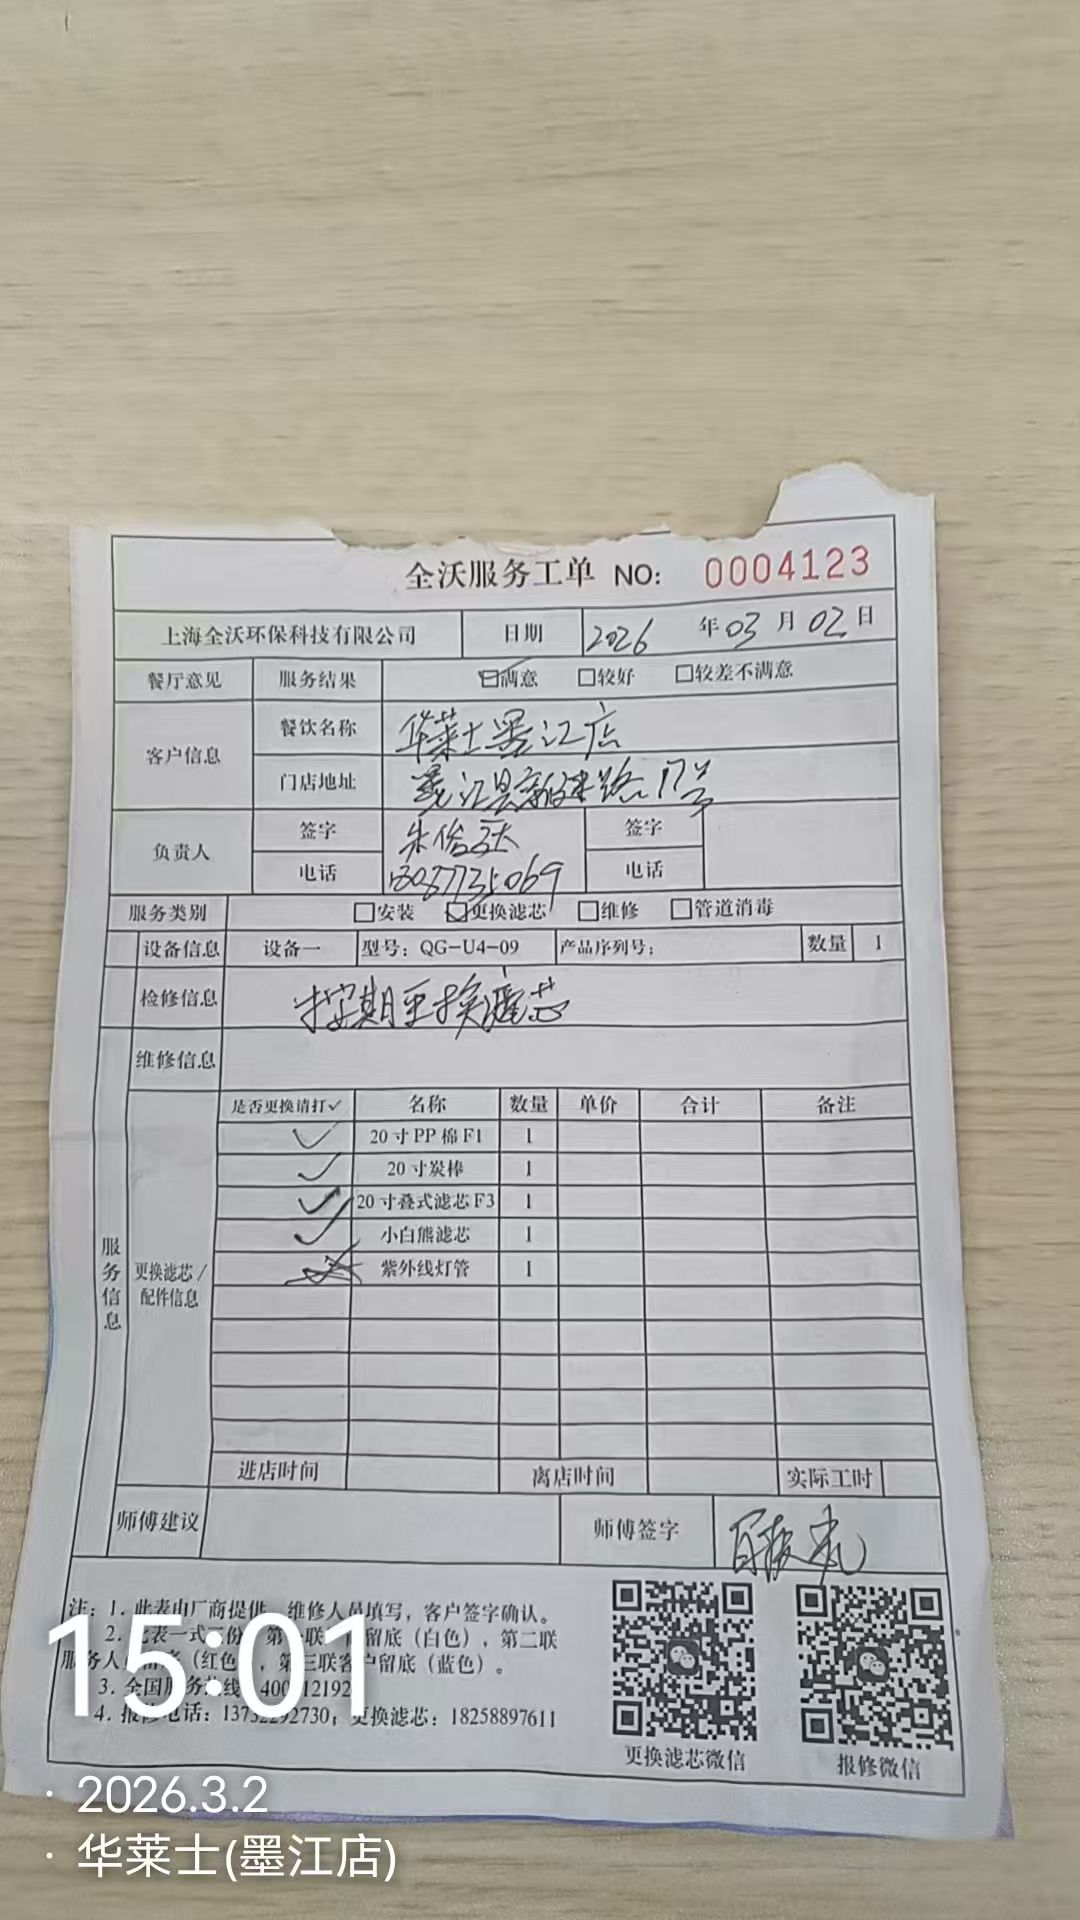 全沃服务工单 NO: 0004123
上海全沃环保科技有限公司 日期 2026 年 03 月 02 日
餐厅意见 服务结果 ☑满意 □较好 □较差不满意
客户信息 餐饮名称 华莱士墨江店
门店地址 墨江县新建路17号
负责人 签字 签字
电话 电话
服务类别 □安装 ☑更换滤芯 □维修 □管道消毒
设备信息 设备一 型号: QG-U4-09 产品序列号: 数量 1
检修信息 按期更换滤芯
维修信息
服务信息 更换滤芯/配件信息
是否更换请打✓ 名称 数量 单价 合计 备注
✓ 20寸PP棉F1 1
✓ 20寸炭棒 1
✓ 20寸叠式滤芯F3 1
✓ 小白熊滤芯 1
紫外线灯管 1
进店时间 离店时间 实际工时
师傅建议 师傅签字
注: 1. 此表由厂商提供, 维修人员填写, 客户签字确认。
2. 此表一式 份, 第一联 留底 (白色), 第二联
服务人 (红色), 第三联客户留底 (蓝色)。
3. 全国服务热线
4. 报修电话: 13732292730; 更换滤芯: 18258897611
更换滤芯微信 报修微信
15:01
· 2026.3.2
· 华莱士(墨江店)